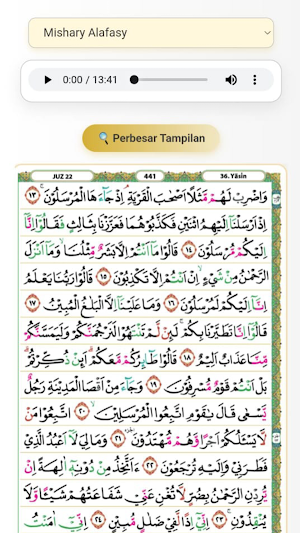 Mishary Alafasy
0:00 / 13:41
🔍 Perbesar Tampilan
JUZ 22 441 36. Yâsin
وَاضْرِبْ لَهُمْ مَّثَلًا اَصْحٰبَ الْقَرْيَةِۘ اِذْ جَاۤءَهَا الْمُرْسَلُوْنَۚ ١٣
اِذْ اَرْسَلْنَآ اِلَيْهِمُ اثْنَيْنِ فَكَذَّبُوْهُمَا فَعَزَّزْنَا بِثَالِثٍ فَقَالُوْٓا اِنَّآ
اِلَيْكُمْ مُّرْسَلُوْنَ ١٤ قَالُوْا مَآ اَنْتُمْ اِلَّا بَشَرٌ مِّثْلُنَاۙ وَمَآ اَنْزَلَ
الرَّحْمٰنُ مِنْ شَيْءٍۙ اِنْ اَنْتُمْ اِلَّا تَكْذِبُوْنَ ١٥ قَالُوْا رَبُّنَا يَعْلَمُ
اِنَّآ اِلَيْكُمْ لَمُرْسَلُوْنَ ١٦ وَمَا عَلَيْنَآ اِلَّا الْبَلٰغُ الْمُبِيْنُ ١٧
قَالُوْٓا اِنَّا تَطَيَّرْنَا بِكُمْۚ لَىِٕنْ لَّمْ تَنْتَهُوْا لَنَرْجُمَنَّكُمْ وَلَيَمَسَّنَّكُمْ
مِّنَّا عَذَابٌ اَلِيْمٌ ١٨ قَالُوْا طَاۤىِٕرُكُمْ مَّعَكُمْۗ اَىِٕنْ ذُكِّرْتُمْۗ
بَلْ اَنْتُمْ قَوْمٌ مُّسْرِفُوْنَ ١٩ وَجَاۤءَ مِنْ اَقْصَا الْمَدِيْنَةِ رَجُلٌ
يَّسْعٰى قَالَ يٰقَوْمِ اتَّبِعُوا الْمُرْسَلِيْنَۙ ٢٠ اتَّبِعُوْا مَنْ
لَّا يَسْـَٔلُكُمْ اَجْرًا وَّهُمْ مُّهْتَدُوْنَ ٢١ وَمَا لِيَ لَآ اَعْبُدُ الَّذِيْ
فَطَرَنِيْ وَاِلَيْهِ تُرْجَعُوْنَ ٢٢ ءَاَتَّخِذُ مِنْ دُوْنِهٖٓ اٰلِهَةً اِنْ
يُّرِدْنِ الرَّحْمٰنُ بِضُرٍّ لَّا تُغْنِ عَنِّيْ شَفَاعَتُهُمْ شَيْـًٔا وَّلَا
يُنْقِذُوْنِۚ ٢٣ اِنِّيْٓ اِذًا لَّفِيْ ضَلٰلٍ مُّبِيْنٍ ٢٤ اِنِّيْٓ اٰمَنْتُ